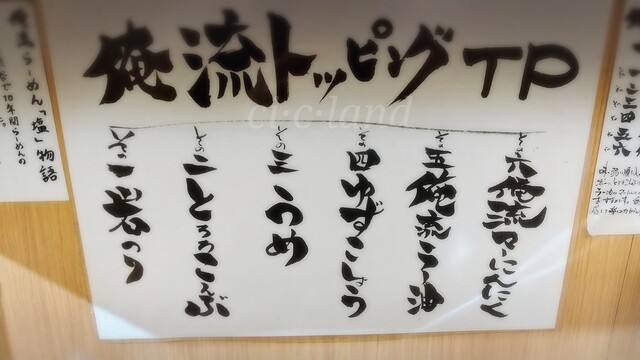 俺流トッピングTP
その一 岩のり
その二 とろろこんぶ
その三 うめ
その四 ゆずこしょう
その五 俺流ラー油
その六 俺流マーにんにく
cl:c:land
らーめん「塩」物語
で10年間らーめんの